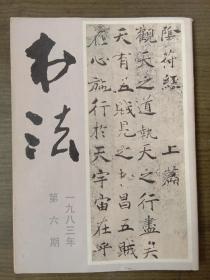 书法
一九八三年
第六期
陰符經 上篇
觀天之道執天之行盡矣
天有五賊見之者昌五賊
在心施行於天宇宙在乎